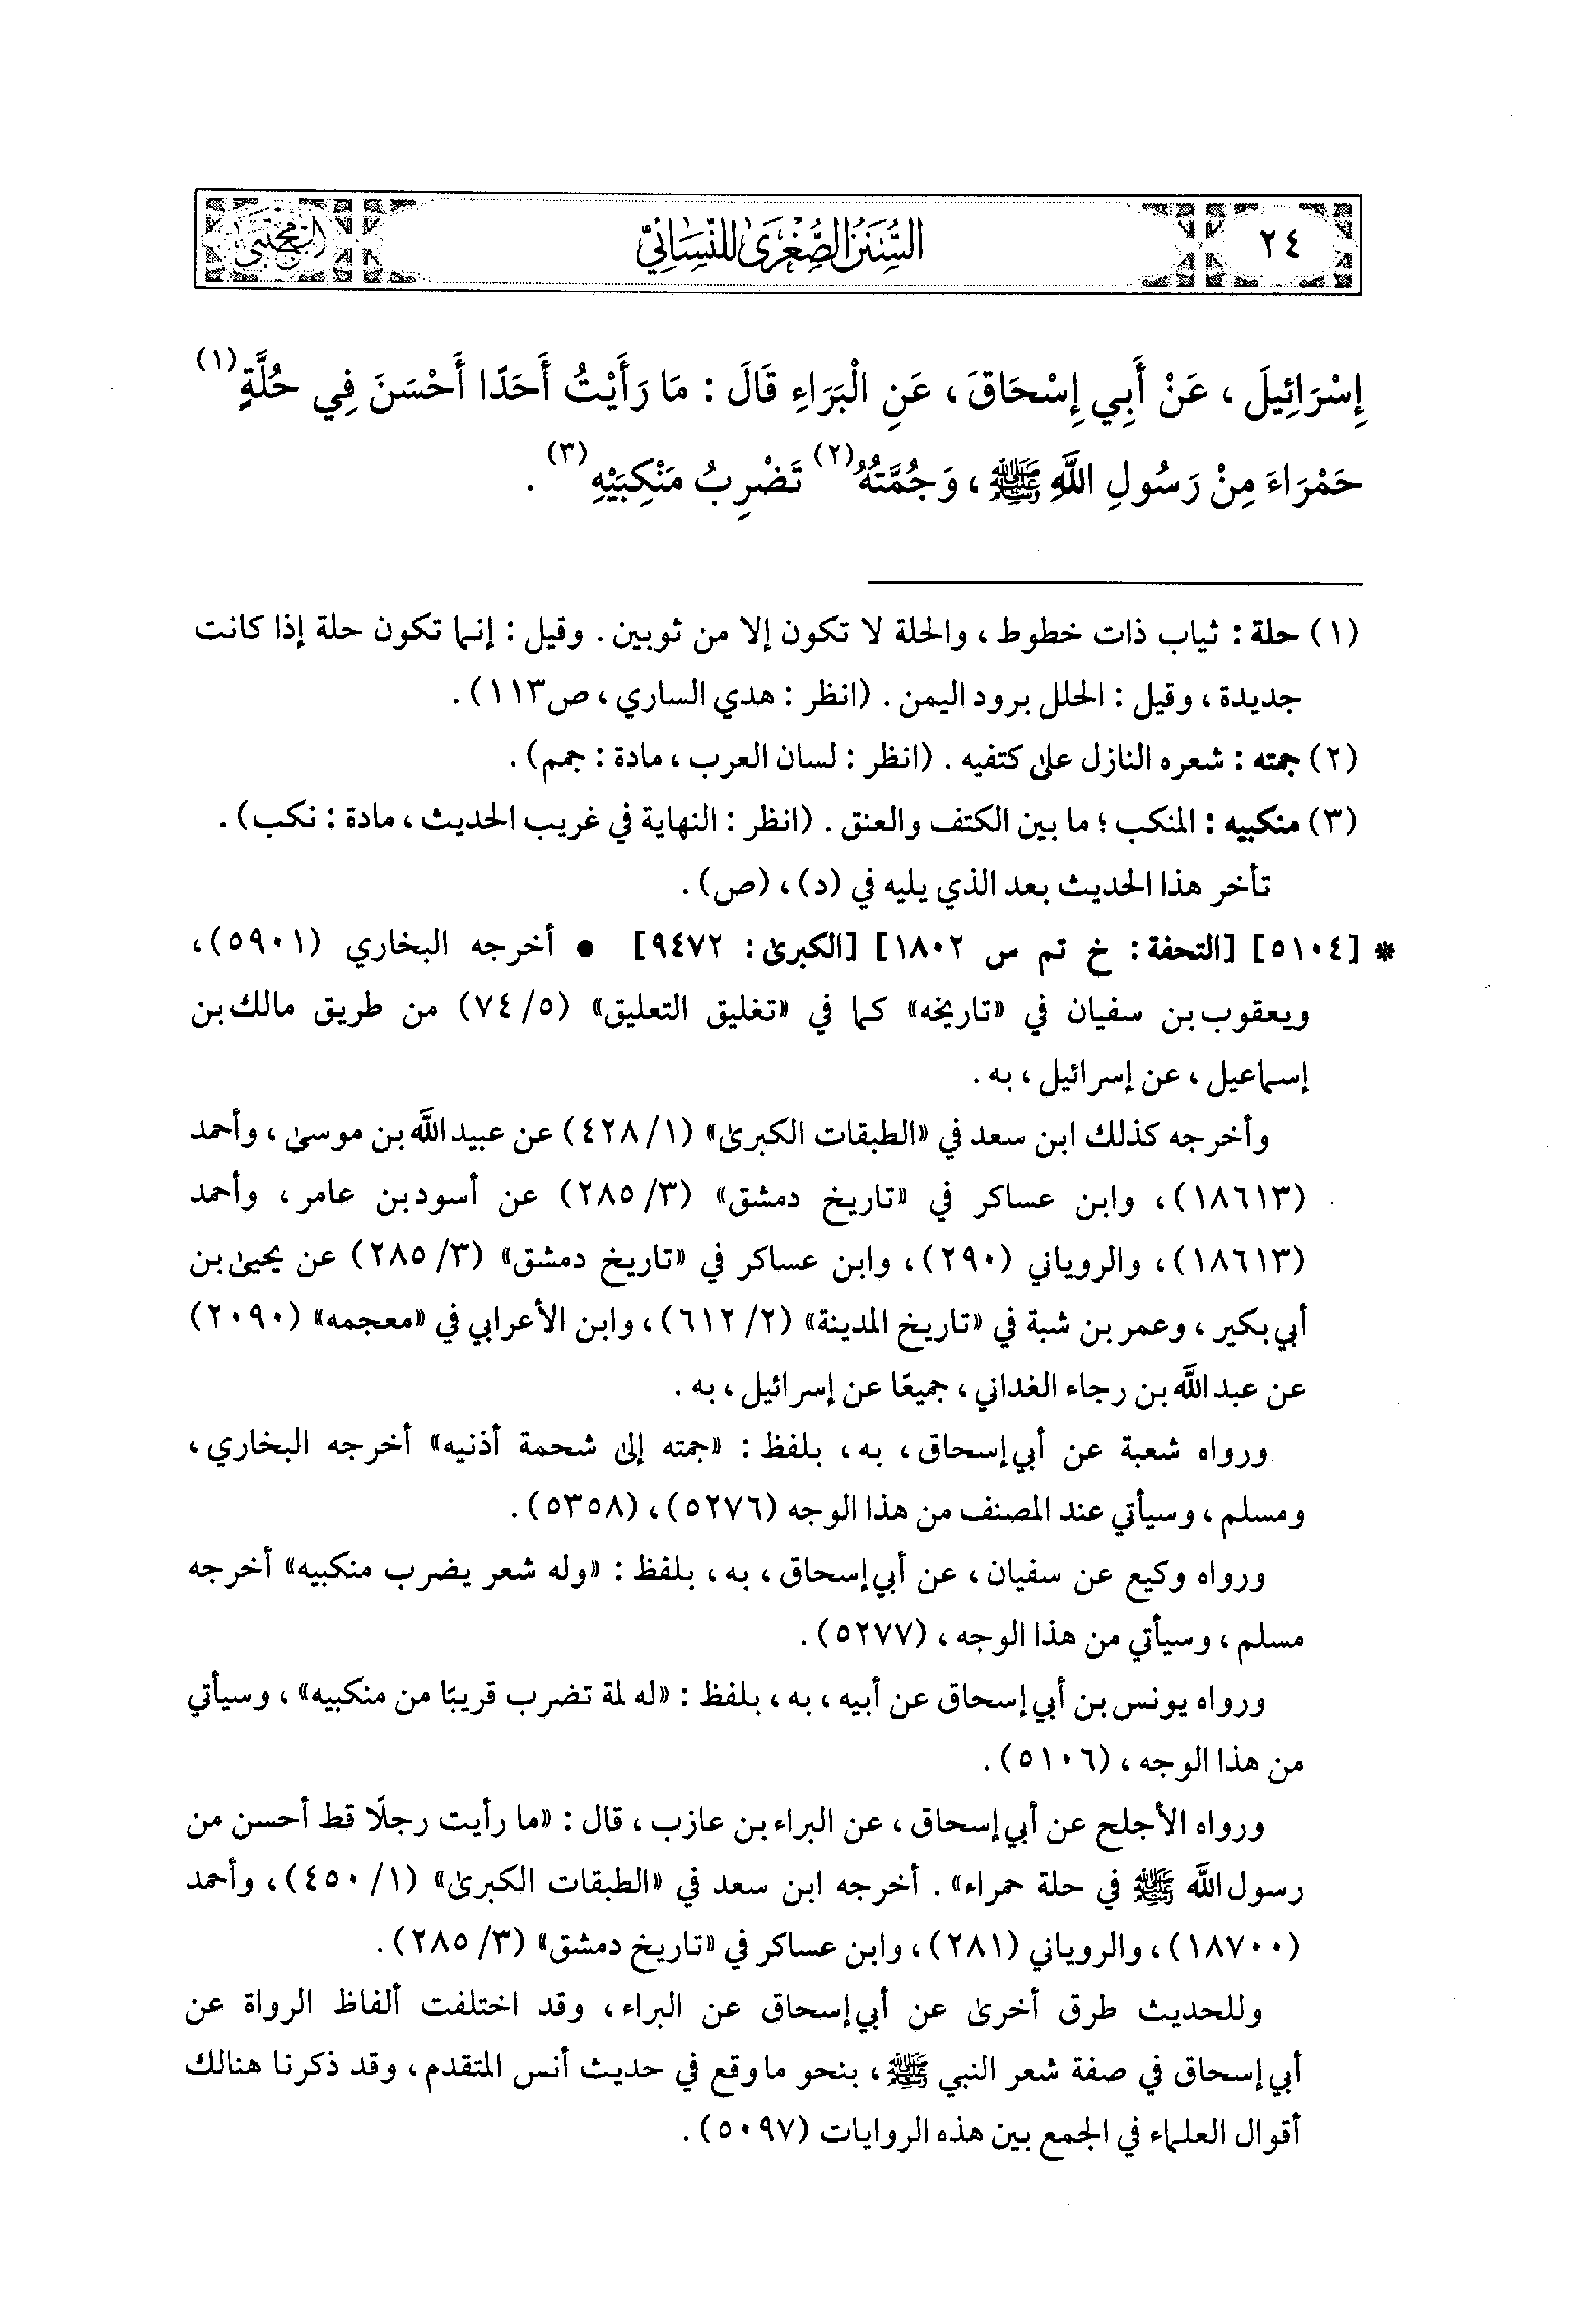 ٢٤
السنن الصغرى للنسائي
المجتبى
إِسْرَائِيلَ ، عَنْ أَبِي إِسْحَاقَ ، عَنِ الْبَرَاءِ قَالَ : مَا رَأَيْتُ أَحَدًا أَحْسَنَ فِي حُلَّةٍ(١)
حَمْرَاءَ مِنْ رَسُولِ اللَّهِ ﷺ ، وَجُمَّتُهُ(٢) تَضْرِبُ مَنْكِبَيْهِ(٣) .
(١) حلة : ثياب ذات خطوط ، والحلة لا تكون إلا من ثوبين . وقيل : إنما تكون حلة إذا كانت
جديدة ، وقيل : الحلل برود اليمن . (انظر : هدي الساري ، ص١١٣) .
(٢) جمته : شعره النازل على كتفيه . (انظر : لسان العرب ، مادة : جمم) .
(٣) منكبيه : المنكب ؛ ما بين الكتف والعنق . (انظر : النهاية في غريب الحديث ، مادة : نكب) .
تأخر هذا الحديث بعد الذي يليه في (د) ، (ص) .
* [٥١٠٤] [التحفة : خ تم س ١٨٠٢] [الكبرى : ٩٤٧٢] ● أخرجه البخاري (٥٩٠١) ،
ويعقوب بن سفيان في «تاريخه» كما في «تغليق التعليق» (٥/ ٧٤) من طريق مالك بن
إسماعيل ، عن إسرائيل ، به .
وأخرجه كذلك ابن سعد في «الطبقات الكبرى» (١/ ٤٢٨) عن عبيد اللَّه بن موسى ، وأحمد
(١٨٦١٣) ، وابن عساكر في «تاريخ دمشق» (٣/ ٢٨٥) عن أسود بن عامر ، وأحمد
(١٨٦١٣) ، والروياني (٢٩٠) ، وابن عساكر في «تاريخ دمشق» (٣/ ٢٨٥) عن يحيى بن
أبي بكير ، وعمر بن شبة في «تاريخ المدينة» (٢/ ٦١٢) ، وابن الأعرابي في «معجمه» (٢٠٩٠)
عن عبد اللَّه بن رجاء الغداني ، جميعًا عن إسرائيل ، به .
ورواه شعبة عن أبي إسحاق ، به ، بلفظ : «جمته إلى شحمة أذنيه» أخرجه البخاري ،
ومسلم ، وسيأتي عند المصنف من هذا الوجه (٥٢٧٦) ، (٥٣٥٨) .
ورواه وكيع عن سفيان ، عن أبي إسحاق ، به ، بلفظ : «وله شعر يضرب منكبيه» أخرجه
مسلم ، وسيأتي من هذا الوجه ، (٥٢٧٧) .
ورواه يونس بن أبي إسحاق عن أبيه ، به ، بلفظ : «له لمة تضرب قريبًا من منكبيه» ، وسيأتي
من هذا الوجه ، (٥١٠٦) .
ورواه الأجلح عن أبي إسحاق ، عن البراء بن عازب ، قال : «ما رأيت رجلًا قط أحسن من
رسول اللَّه ﷺ في حلة حمراء» . أخرجه ابن سعد في «الطبقات الكبرى» (١/ ٤٥٠) ، وأحمد
(١٨٧٠٠) ، والروياني (٢٨١) ، وابن عساكر في «تاريخ دمشق» (٣/ ٢٨٥) .
وللحديث طرق أخرى عن أبي إسحاق عن البراء ، وقد اختلفت ألفاظ الرواة عن
أبي إسحاق في صفة شعر النبي ﷺ ، بنحو ما وقع في حديث أنس المتقدم ، وقد ذكرنا هنالك
أقوال العلماء في الجمع بين هذه الروايات (٥٠٩٧) .